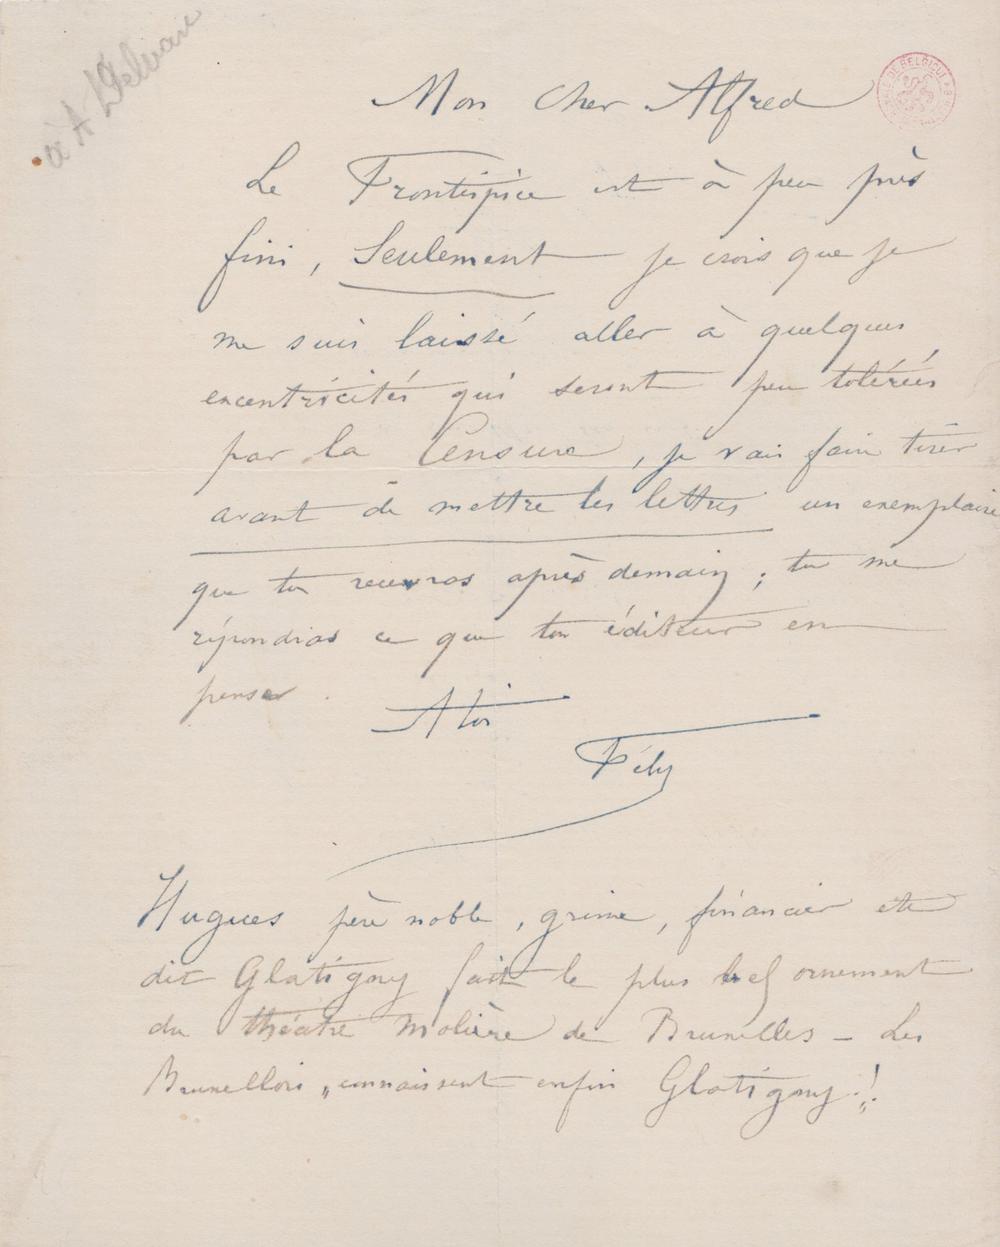 à A Delvau
Mon Cher Alfred
Le Frontispice est à peu près
fini, Seulement je crois que je
me suis laissé aller à quelques
excentricités qui seront peu tolérées
par la Censure, je vais faire tirer
avant de mettre les lettres un exemplaire
que tu recevras après demain ; tu me
répondras ce que ton éditeur en
pense .
A toi
Fély
Hugues père noble, grime, financier etc
dit Glatigny fait le plus bel ornement
du théâtre Molière de Bruxelles – Les
Bruxellois "connaissent enfin Glatigny"!